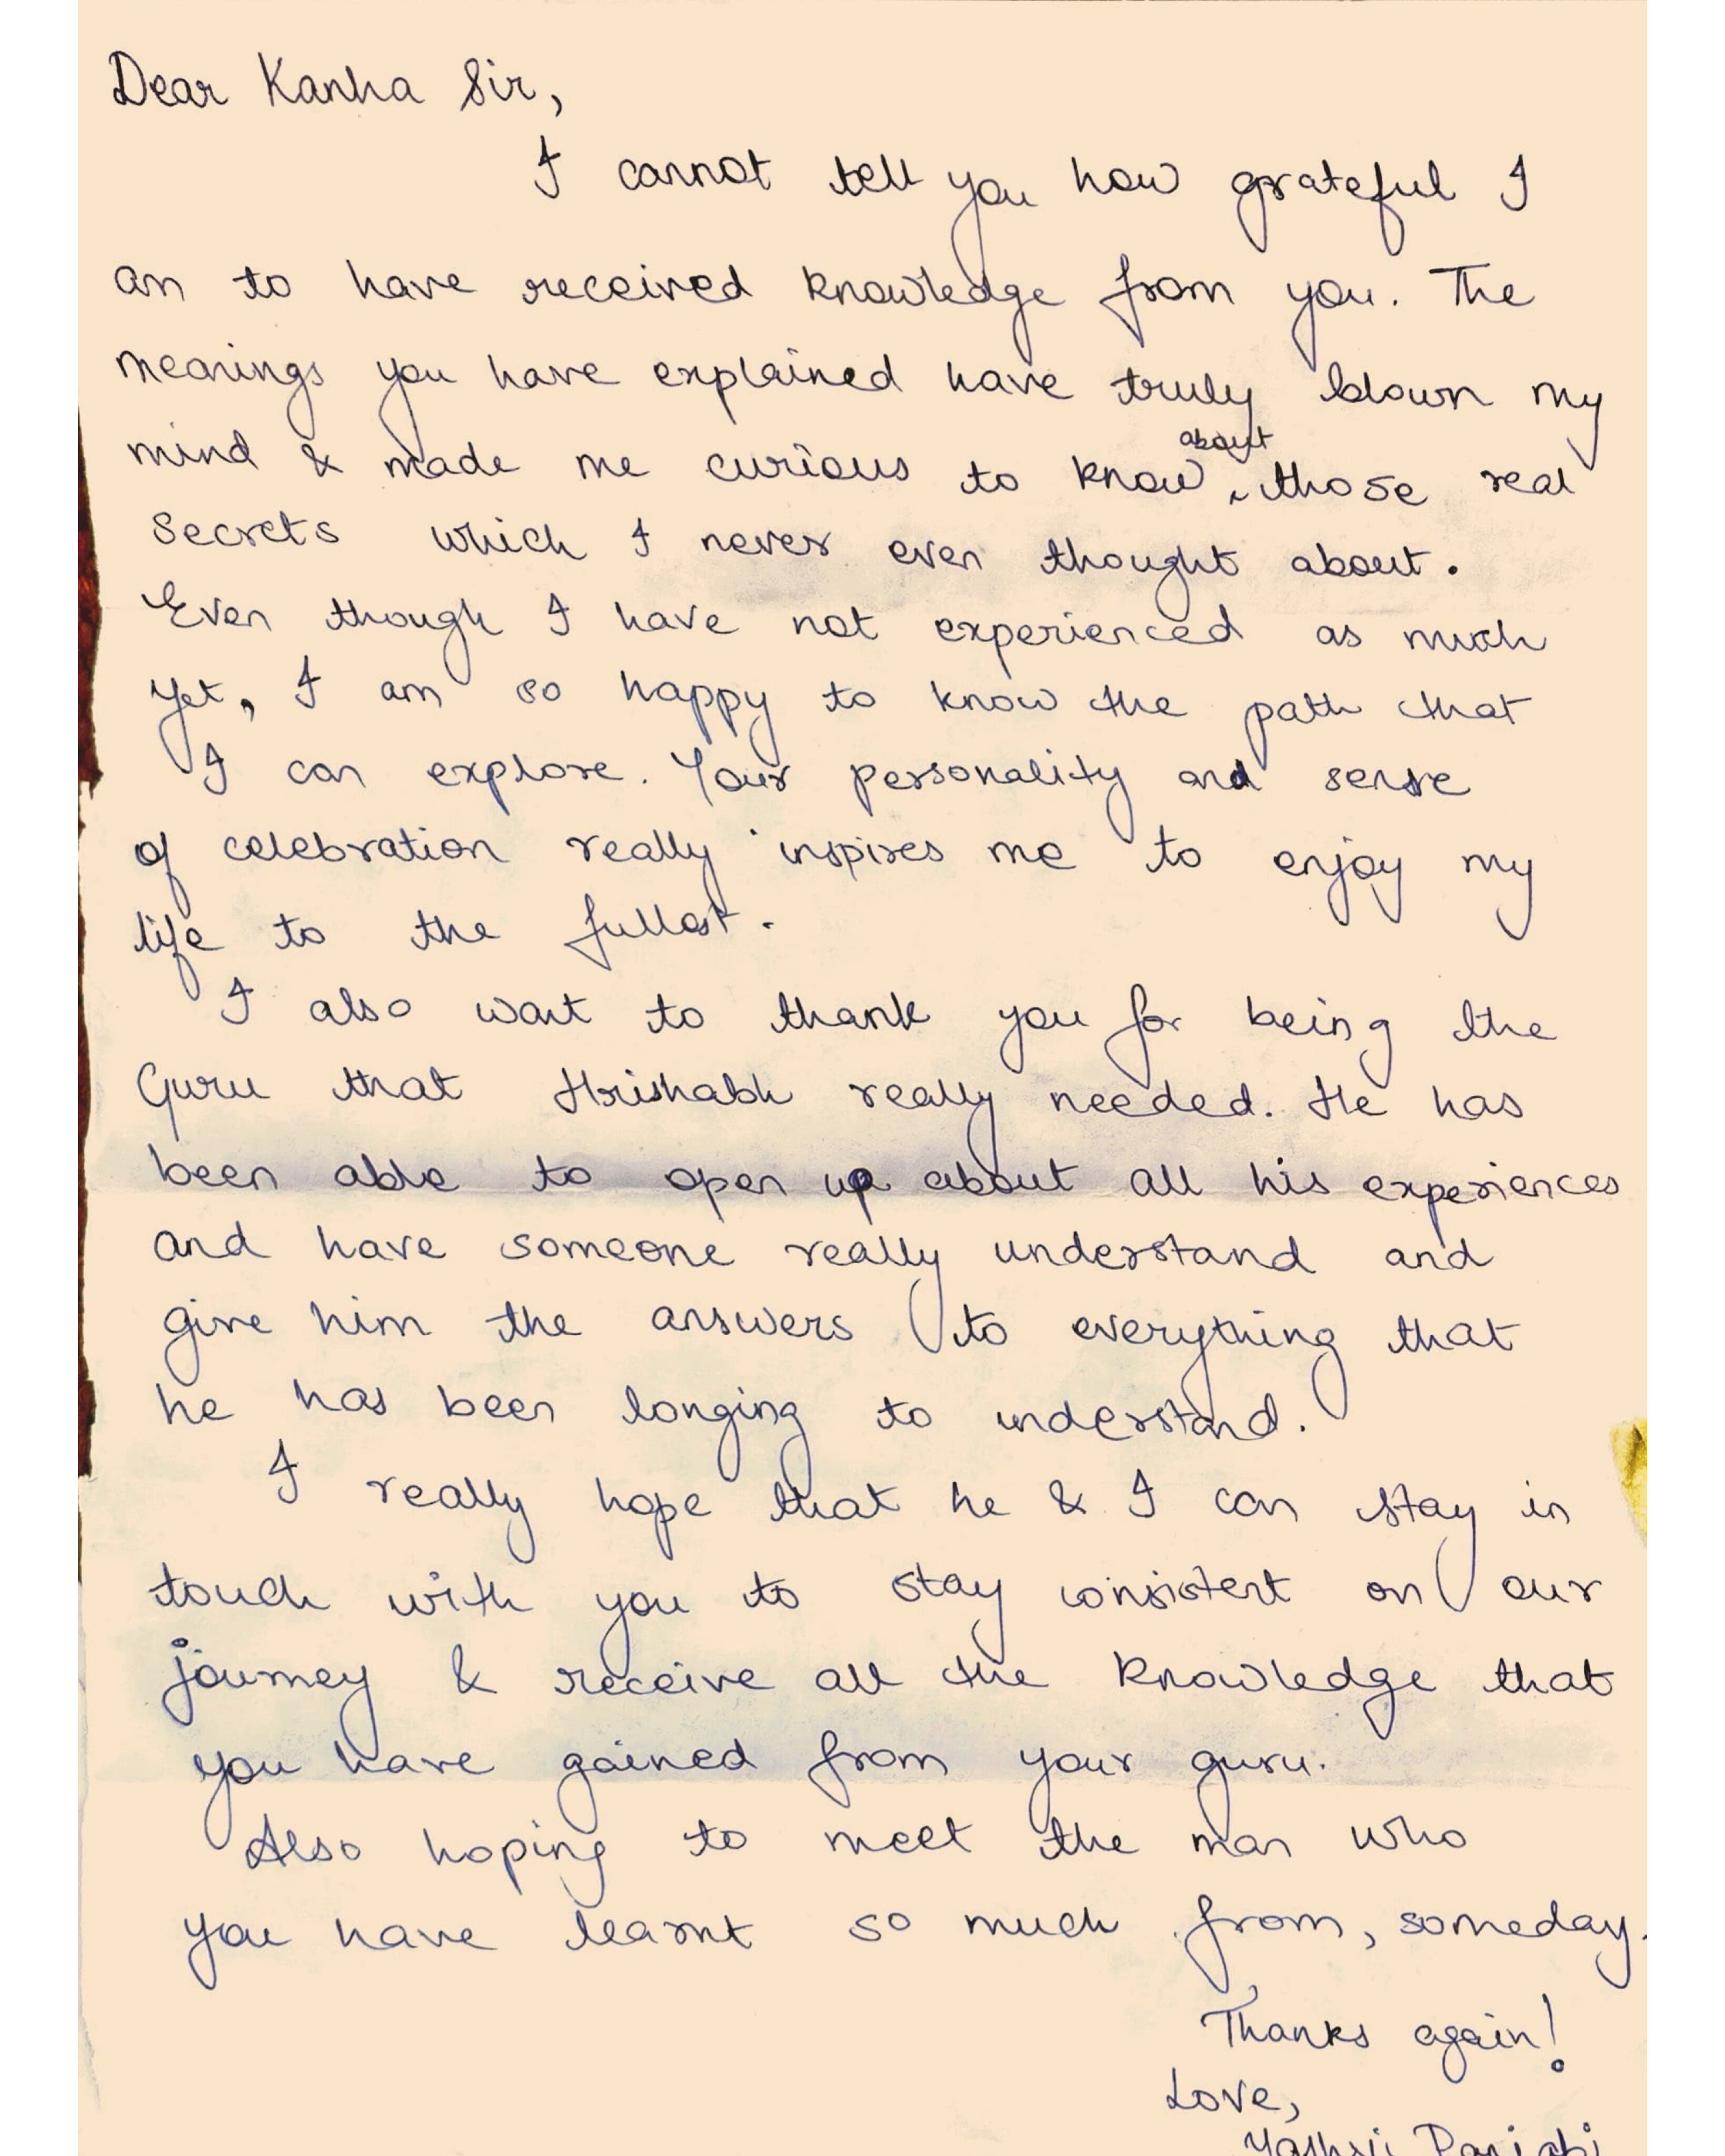 Dear Kanha Sir,
I cannot tell you how grateful I
am to have received knowledge from you. The
meanings you have explained have truly blown my
mind & made me curious to know about those real
secrets which I never even thought about.
Even though I have not experienced as much
yet, I am so happy to know the path that
I can explore. Your personality and sense
of celebration really inspires me to enjoy my
life to the fullest.
I also want to thank you for being the
Guru that Hrishabh really needed. He has
been able to open up about all his experiences
and have someone really understand and
give him the answers to everything that
he has been longing to understand.
I really hope that he & I can stay in
touch with you to stay consistent on our
journey & receive all the knowledge that
you have gained from your guru.
Also hoping to meet the man who
you have learnt so much from, someday.
Thanks again!
Love,